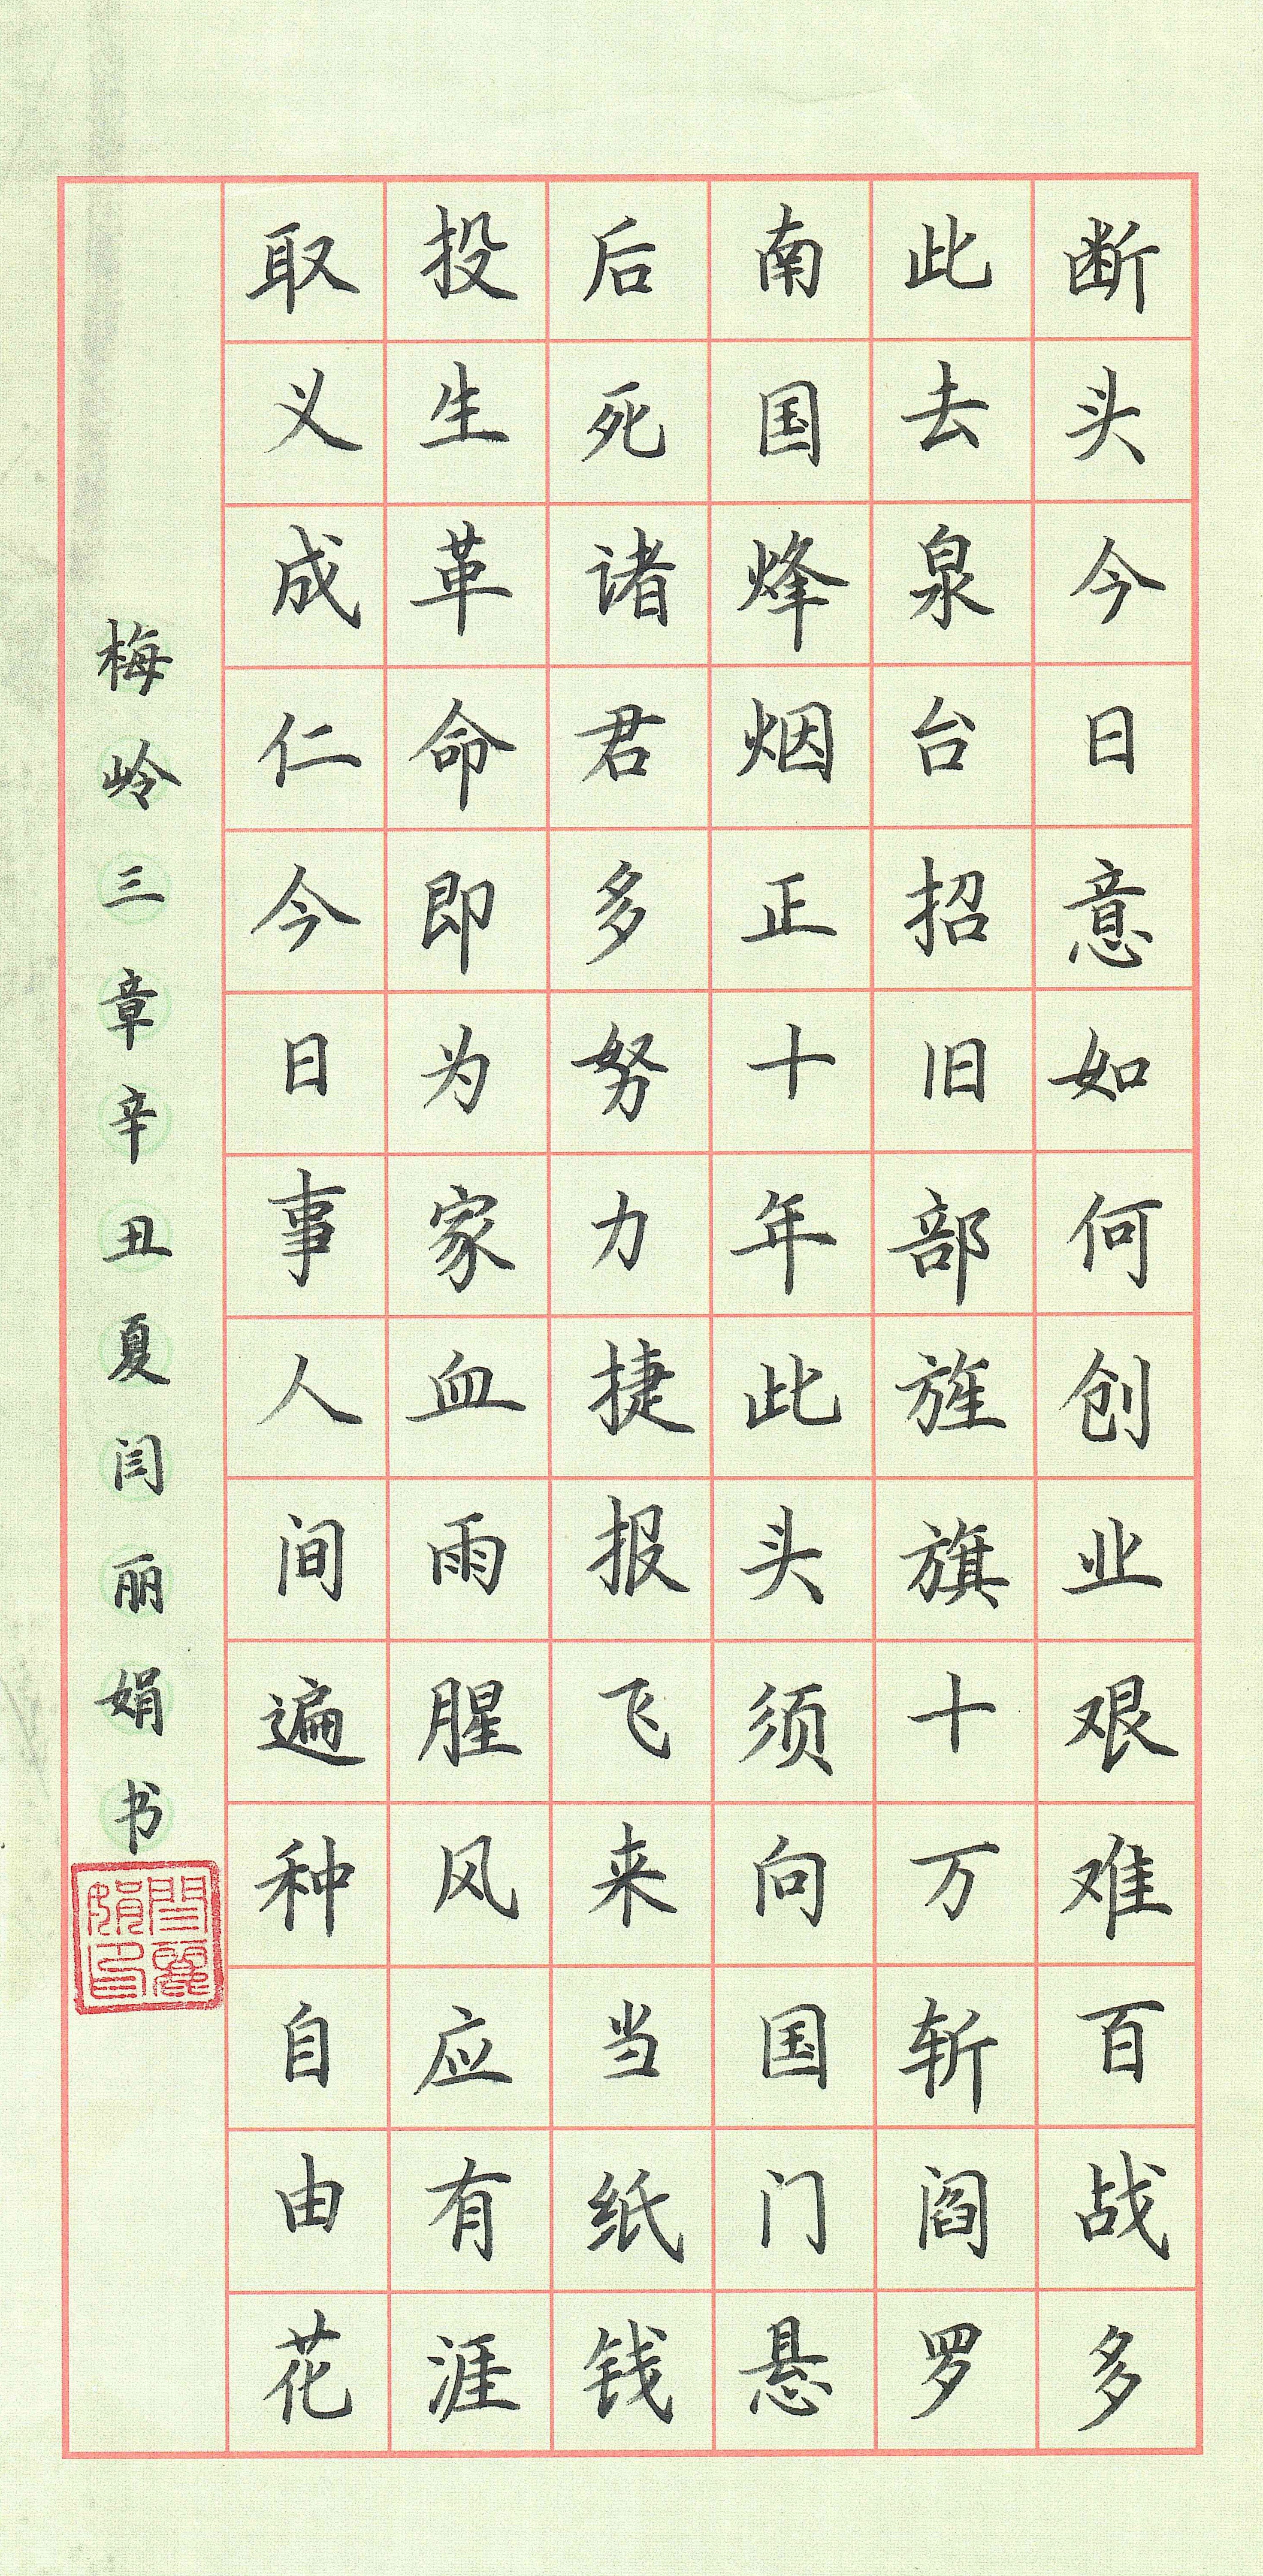 断头今日意如何创业艰难百战多
此去泉台招旧部旌旗十万斩阎罗
南国烽烟正十年此头须向国门悬
后死诸君多努力捷报飞来当纸钱
投生革命即为家血雨腥风应有涯
取义成仁今日事人间遍种自由花
梅岭三章辛丑夏闫丽娟书
閆麗娟印